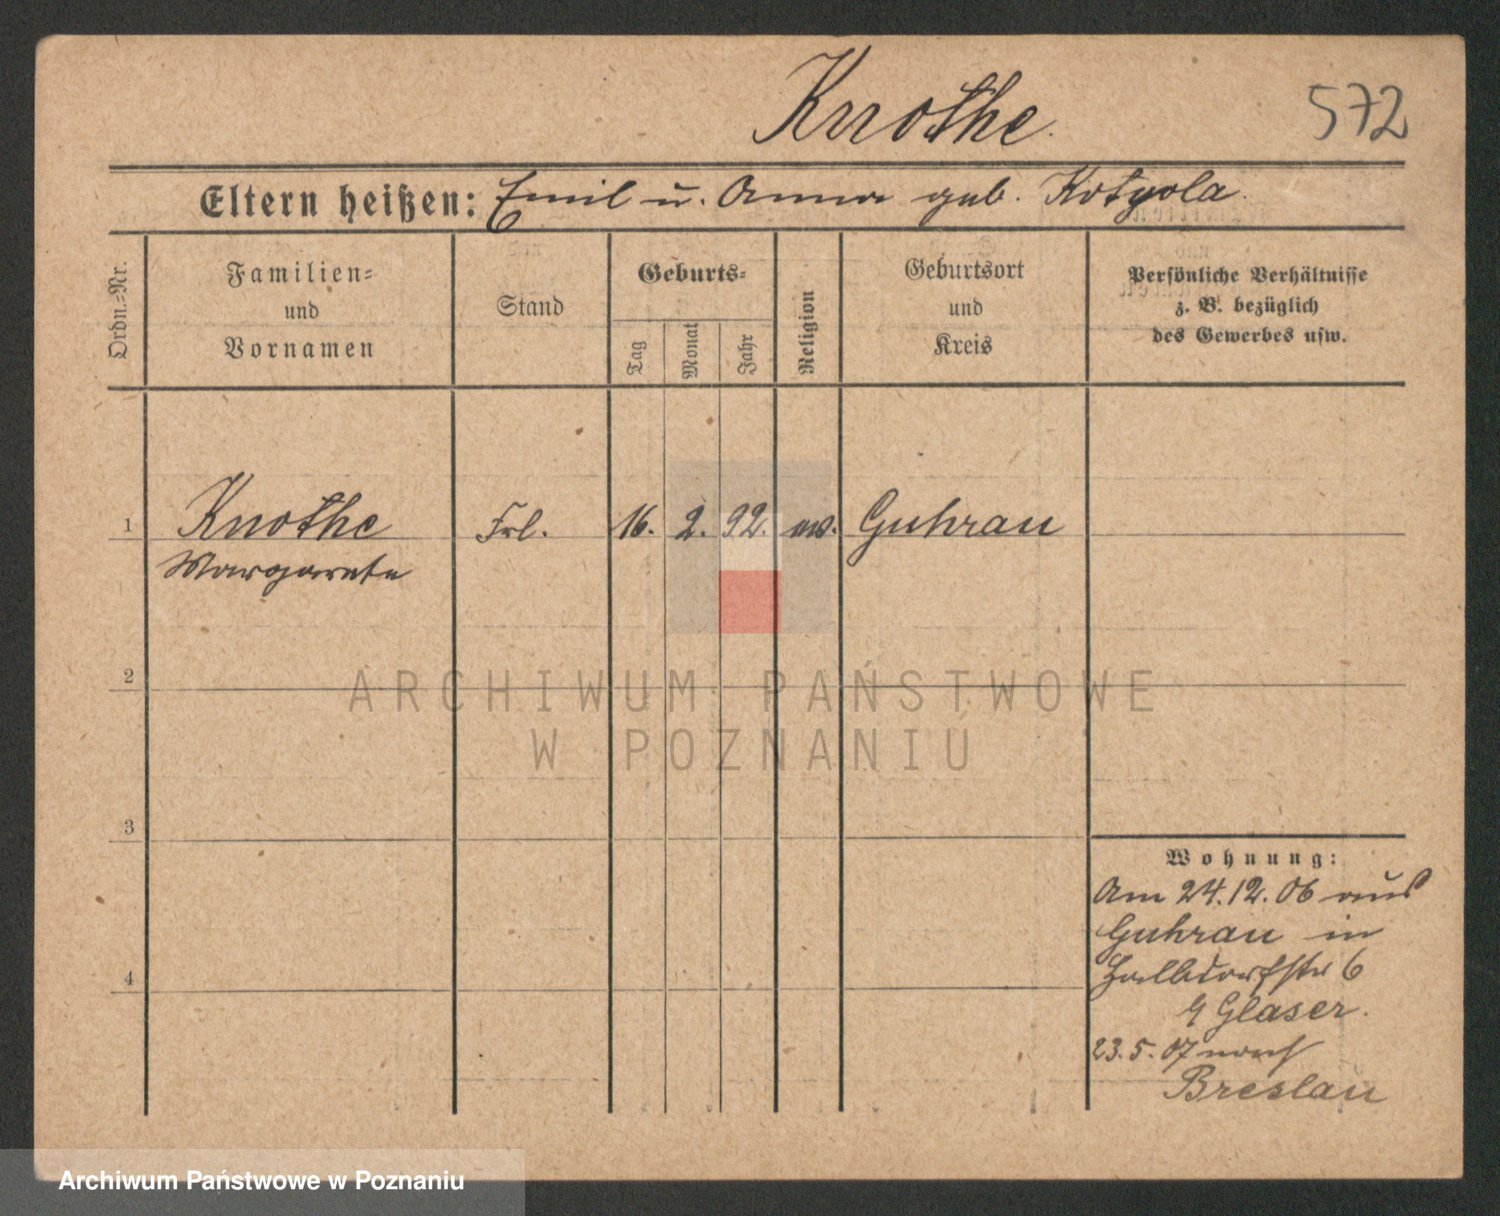 Knothe
572
Eltern heißen: Emil u. Anna geb. Kotyola
Ordn.=Nr.
Familien=
und
Vornamen
Stand
Geburts=
Tag
Monat
Jahr
Religion
Geburtsort
und
Kreis
Persönliche Verhältnisse
z. B. bezüglich
des Gewerbes usw.
1
Knothe
Margarete
Frl.
16.
2.
92.
ev.
Guhrau
2
3
4
ARCHIWUM PAŃSTWOWE
W POZNANIU
Wohnung:
Am 24.12.06 aus
Guhrau in
6
Glaser.
23.5.07 nach
Breslau
Archiwum Państwowe w Poznaniu